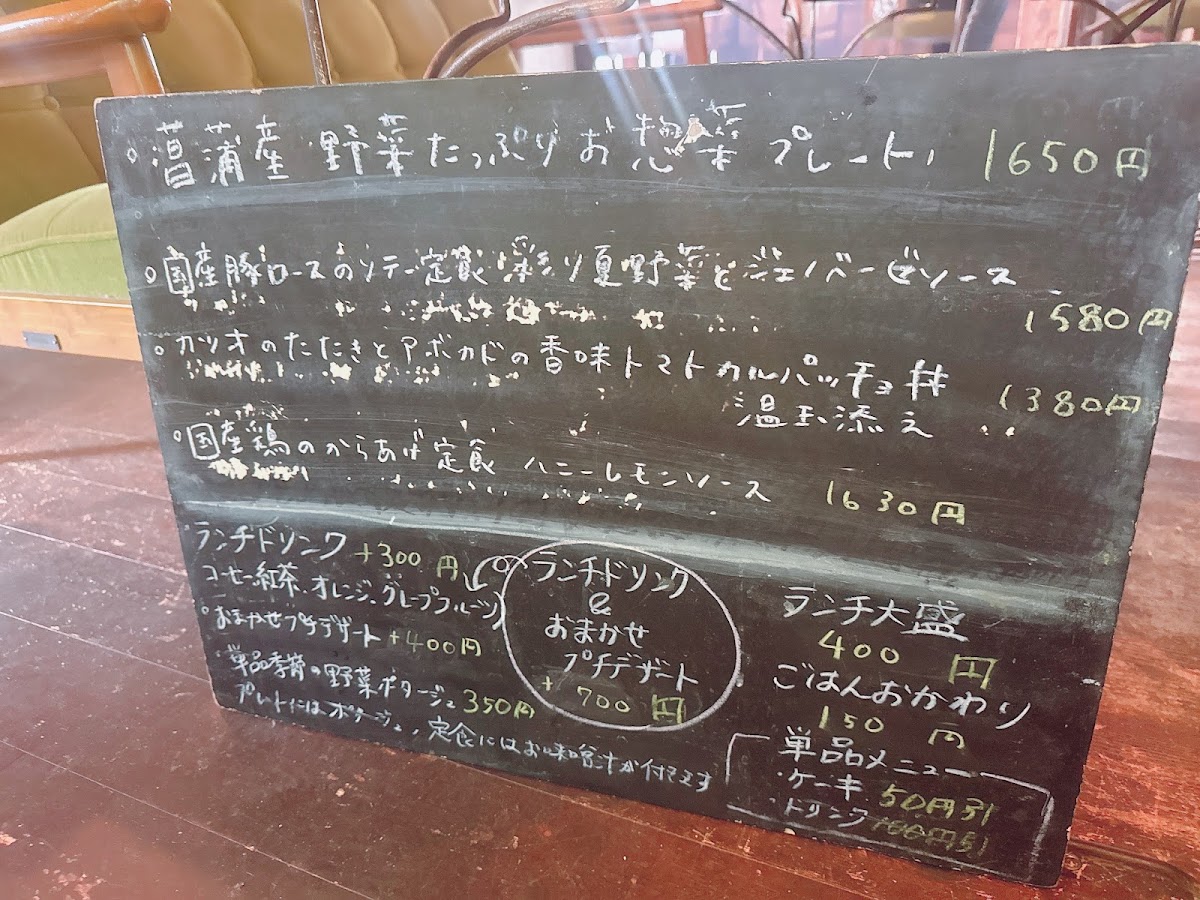 ○菖蒲産 野菜たっぷりお惣菜プレート 1650円
○国産豚ロースのソテー定食 彩り夏野菜とジェノベーゼソース
1580円
○カツオのたたきとアボカドの香味トマトカルパッチョ丼 1380円
温玉添え
○国産鶏のからあげ定食 ハニーレモンソース 1630円
ランチドリンク +300円
コーヒー紅茶、オレンジ、グレープフルーツ
○おまかせプチデザート +400円
単品季節の野菜ポタージュ 350円
プレートにはポタージュ、定食にはお味噌汁が付きます
○ランチドリンク
&
おまかせ
プチデザート
+700円
ランチ大盛
400円
ごはんおかわり
150円
単品メニュー
・ケーキ 50円引
・ドリンク 100円引